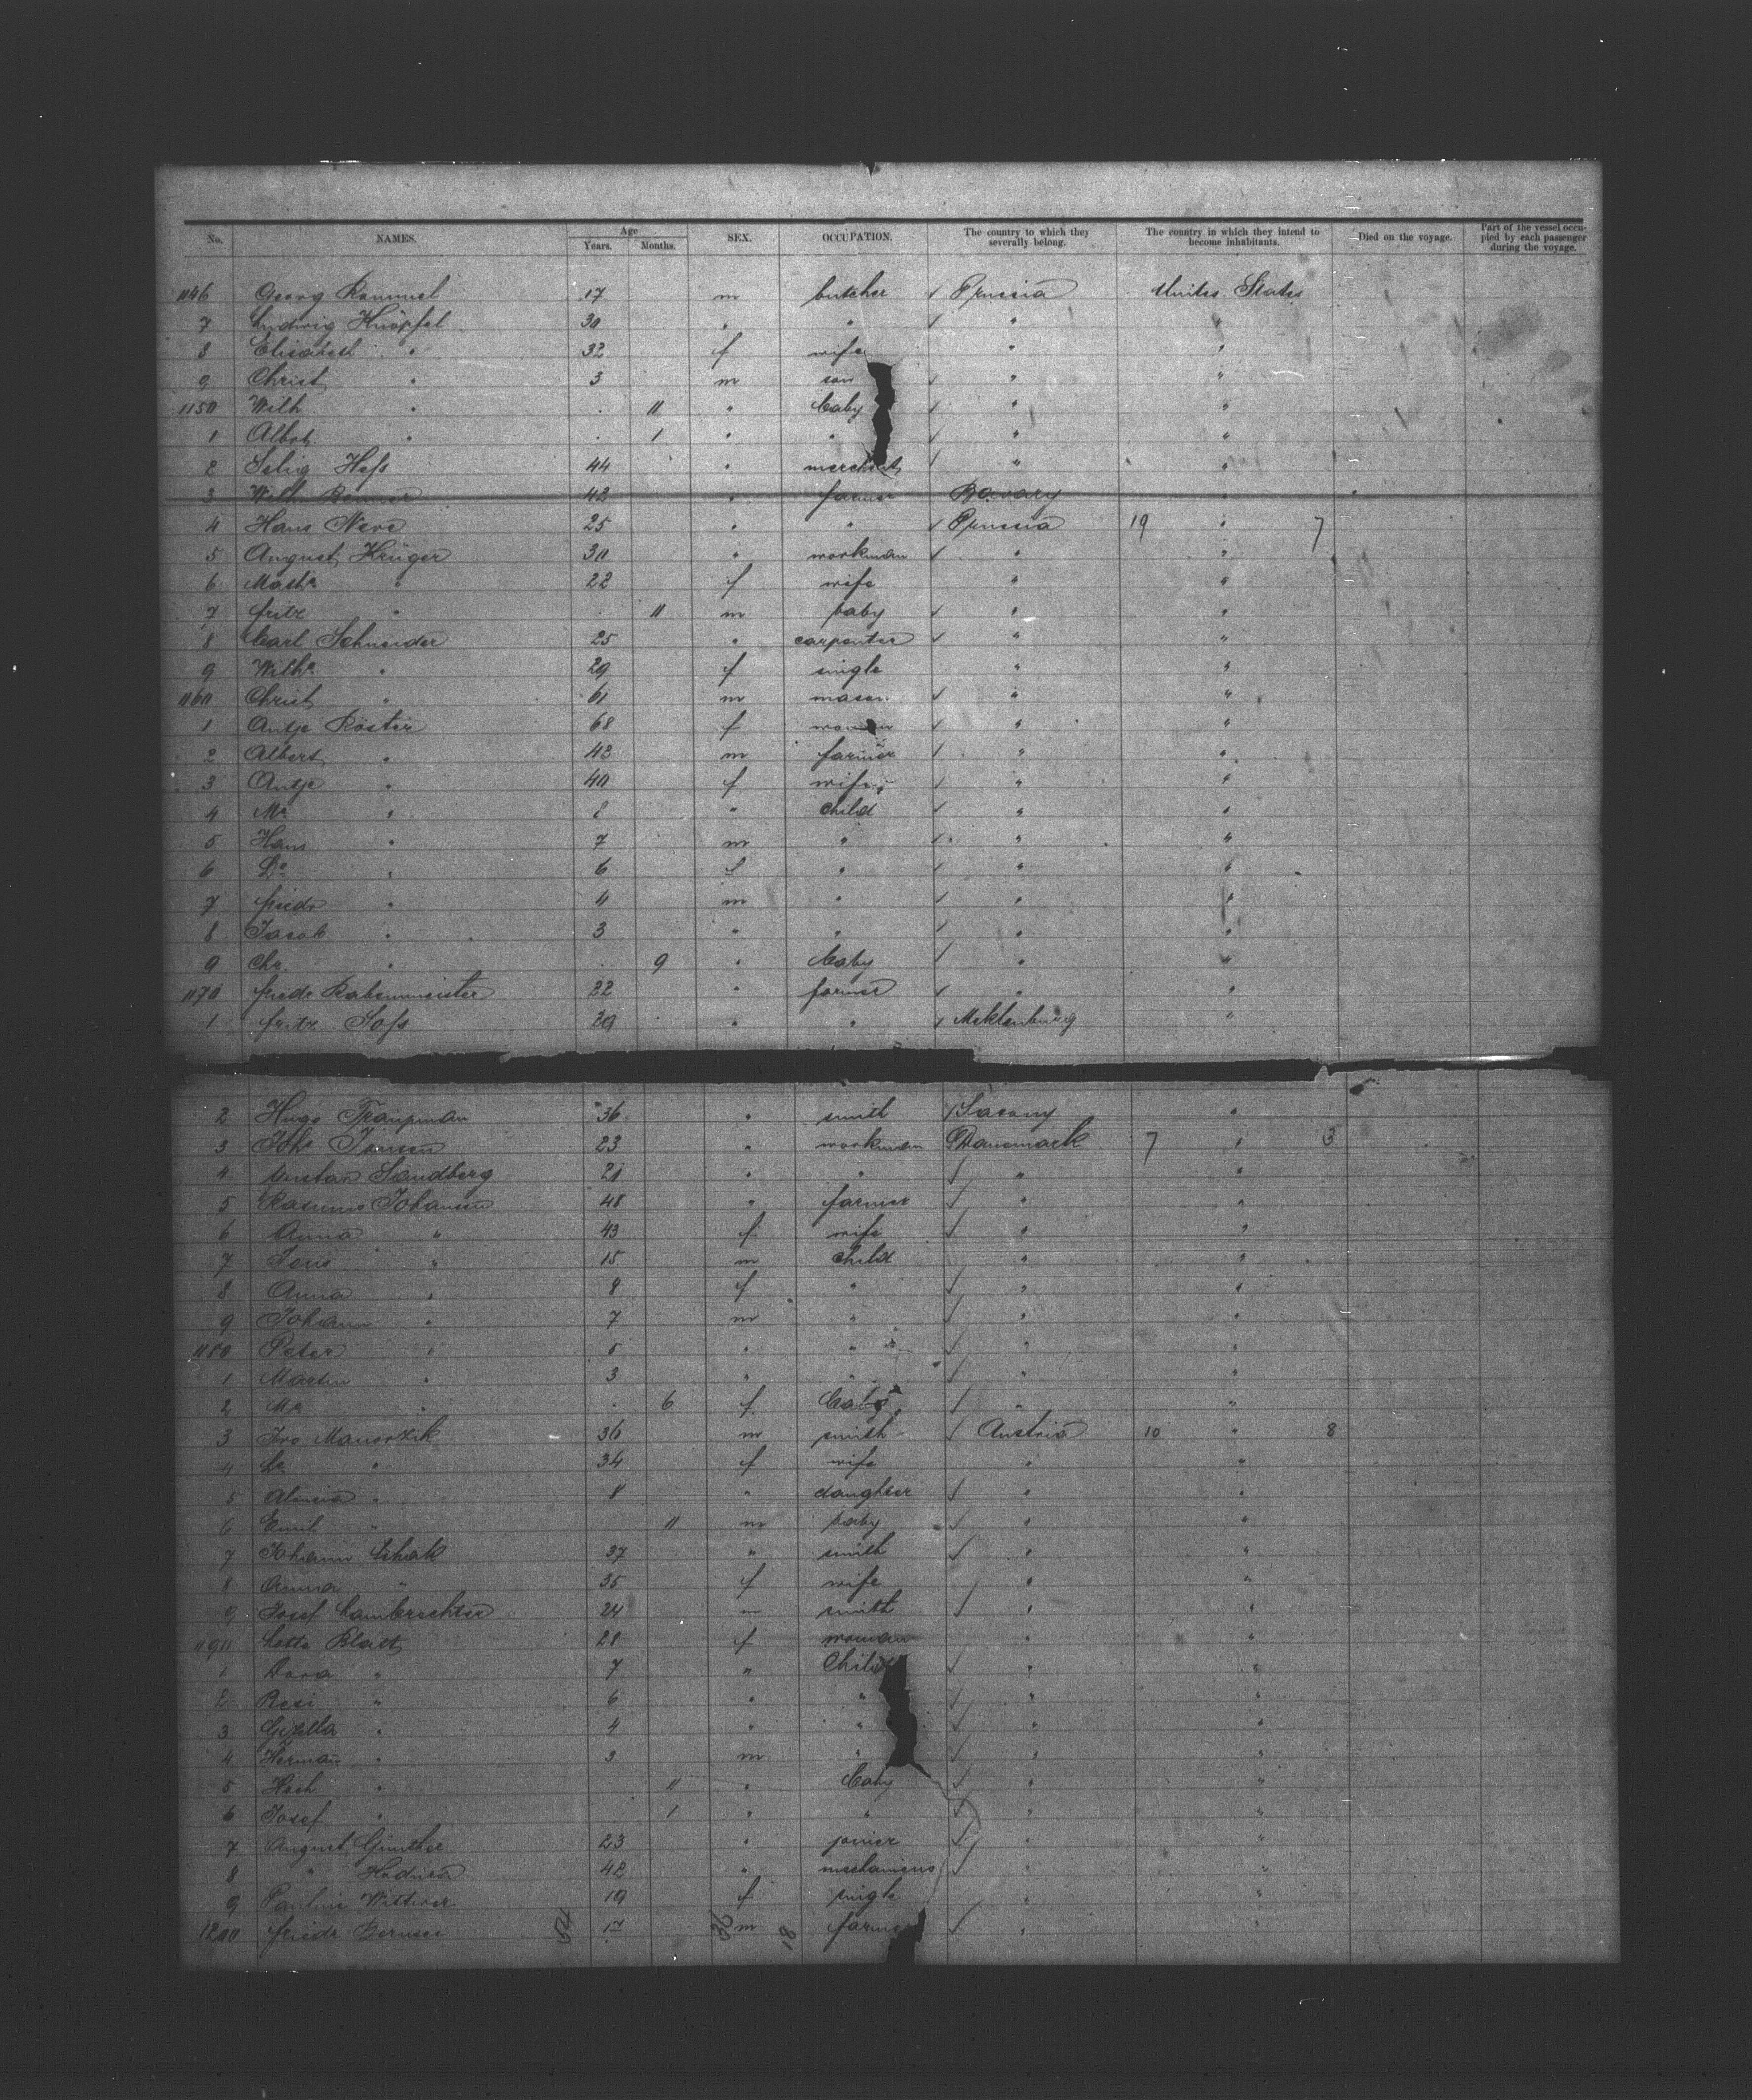 No. NAMES. Age Years. Months. SEX. OCCUPATION. The country to which they severally belong. The country in which they intend to become inhabitants. Died on the voyage. Part of the vessel occupied by each passenger during the voyage.
1146 Georg Rommel 17 m butcher ✓ Prussia Unites States
7 Ludwig Knöpfel 30 " " ✓ " "
8 Elisabeth " 32 f wife " "
9 Christ " 3 m son ✓ " "
1150 Wilh " 11 " baby ✓ " "
1 Albert " 1 " " ✓ " "
2 Selig Hess 44 " merchant ✓ " "
3 Wilh 42 " farmer Bavary
4 Hans Neve 25 " " ✓ Prussia 19 " 7
5 August Krüger 30 " workman ✓ " "
6 " 22 f wife " "
7 fritz " 11 m baby ✓ " "
8 Carl Schneider 25 " carpenter ✓ " "
9 Wilhe " 29 f single " "
1160 Christ " 61 m mason ✓ " "
1 Antje Köster 68 f woman ✓ " "
2 Albert " 42 m farmer ✓ " "
3 Antje " 40 f wife ✓ " "
4 Ma " 8 " child ✓ " "
5 Hans " 7 m " ✓ " "
6 " 6 f " ✓ " "
7 friedr " 4 m " ✓ " "
8 Jacob " 3 " " ✓ " "
9 Chr. " 9 " baby ✓ " "
1170 friedr Rabenmeister 22 " farmer ✓ " "
1 fritz 29 " " ✓ Meklenburg "
2 Hugo Traupman 36 " smith ✓ Saxony "
3 Johs Jvensen 23 " workman Danemark 7 " 3
4 Gustav Sandberg 21 " " ✓ " "
5 Rasmus Johansen 48 " farmer ✓ " "
6 Anna " 43 f wife ✓ " "
7 Jens " 15 m child " "
8 Anna " 8 f " ✓ " "
9 Johann " 7 m " ✓ " "
1180 Peter " 5 " " ✓ " "
1 Martin " 3 " " ✓ " "
2 Ma " 6 f baby ✓ " "
3 36 m smith ✓ Austria 10 " 8
4 " 34 f wife " "
5 " 8 " daughter ✓ " "
6 Emil " 11 m baby ✓ " "
7 Johann 37 " smith ✓ " "
8 Anna " 35 f wife " "
9 Josef Lambrechter 24 m smith ✓ " "
1190 Lotte Blatt 28 f woman " "
1 Dora " 7 " Child ✓ " "
2 Resi " 6 " " ✓ " "
3 Gisella " 4 " " ✓ " "
4 Herman " 3 m " ✓ " "
5 " 11 " baby ✓ " "
6 Josef " 1 " " ✓ " "
7 August Günther 23 " joiner ✓ " "
8 " 42 " mechanicus ✓ " "
9 Pauline 19 f single " "
1200 friedr 17 m farmer ✓ " "